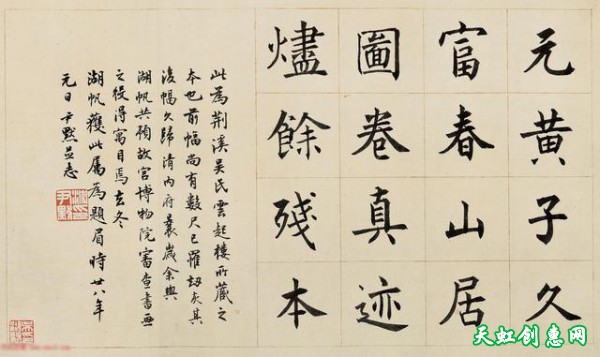 元黃子久
富春山居
圖卷真迹
燼餘殘本
此為荆溪吳氏雲起樓所藏之
本也前幅尚有數尺已罹劫灰其
後幅久歸清内府曩歲余與
湖帆共預故宮博物院審查書畫
之役得寓目焉去冬
湖帆獲此屬為題眉時廿八年
元日尹默並志
天虹创惠网